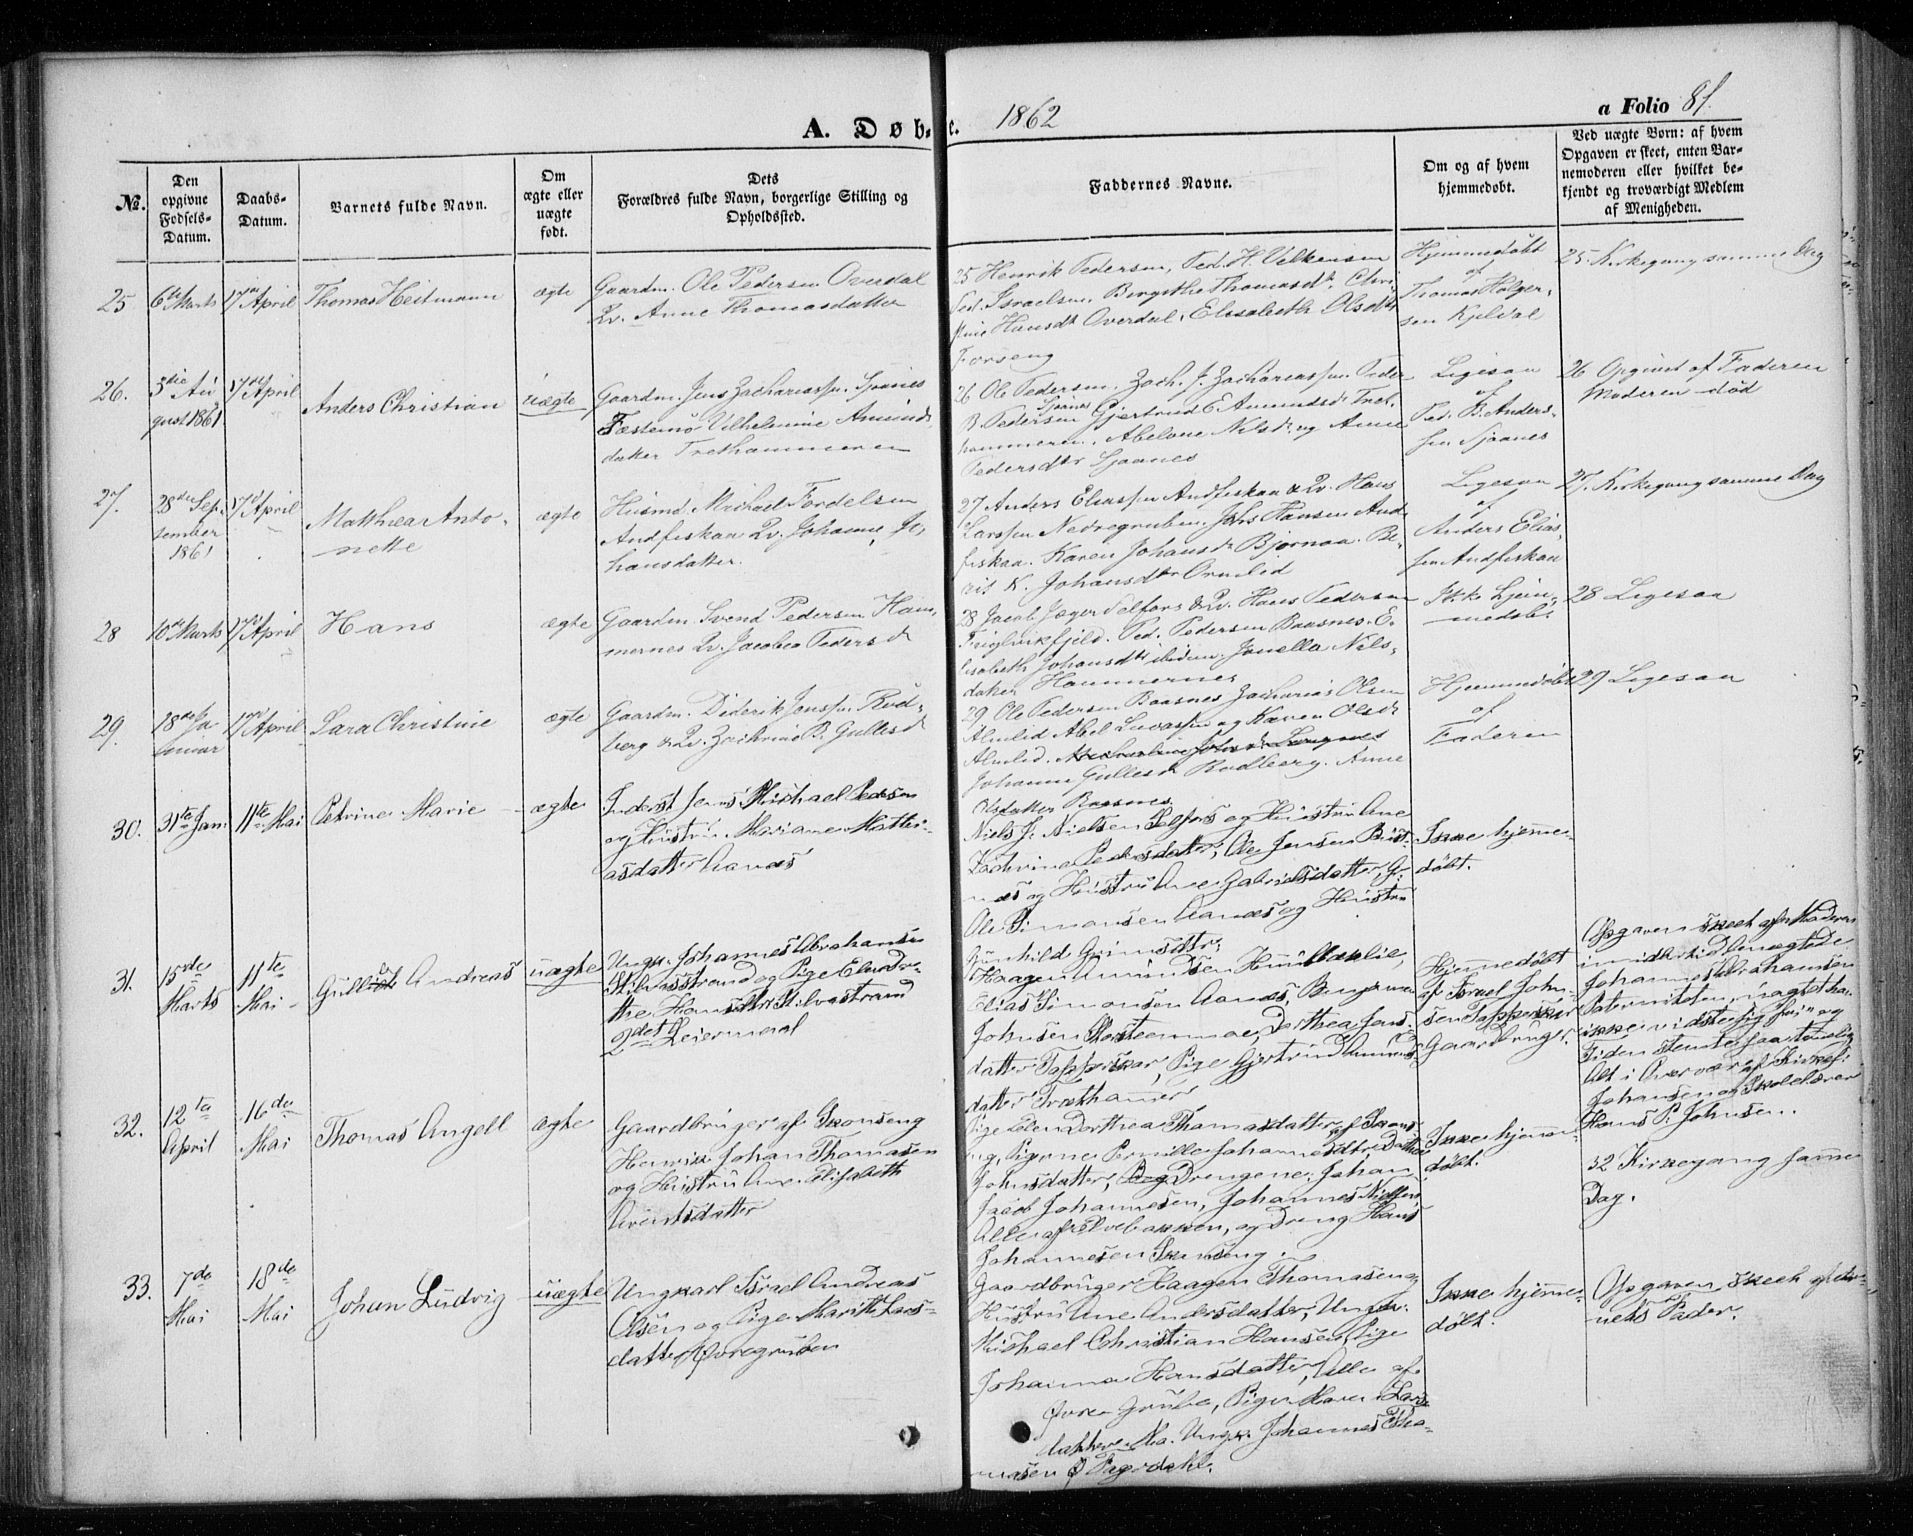 A. Døbte. 1862
a Folio 81.
№.
Den opgivne Fødsels-Datum.
Daabs-Datum.
Barnets fulde Navn.
Om ægte eller uægte født.
Dets Forældres fulde Navn, borgerlige Stilling og Opholdssted.
Faddernes Navne.
Om og af hvem hjemmedøbt.
Ved uægte Børn: af hvem Opgaven er skeet, enten Barnemoderen eller hvilket bekjendt og troværdigt Medlem af Menigheden.
25
6te Marts
17de April
Thomas Heitmann
ægte
Gaardm. Ole Pedersen Overdal
Qv. Anne Thomasdatter
25 Henrik Pedersen, Ped. H. Velkensen
Ped. Israelsen. Birgithe Thomasdr. Chri-
stine Hansdr Overdal. Elisabeth Olsdtr
Forseng
Hjemmedøbt
af
Thomas Holger-
sen Kjeldal
25 Kirkegang samme Dag
26.
3die Au-
gust 1861
17de April
Anders Christian
uægte
Gaardm. Jens Zachariassn. Sjaanes
Fæstemø Vilhelmine Amunds-
datter Trethammeren
26 Ole Pedersen. Zach. J. Zachariassen. Peder
B. Pedersen Sjaanes Gjertrud E. Amundsdr Tret-
hammeren. Abelone Nilsdr og Anne
Pedersdtr Sjaanes
Ligesaa
af
Ped. B. Anders-
sen Sjaanes
26 Opgivet af Faderen
Moderen død
27.
28de Sep-
tember
1861
17de April
Matthea Anto-
nette
ægte
Husmd. Michael Fordelsen
Andfiskaa Qv. Johanna Jo-
hansdatter.
27 Anders Eliassen Andfiskaa & Qv. Hans
Larssen Nedregruben. Johs Hansen And-
fiskaa. Karen Johansdr Bjørnaa. Be-
rit K. Johansdtr Ormlid
Ligesaa
af
Anders Elias-
sen Andfiskaa
27. Kirkegang samme Dag
28
10de Marts
17de April
Hans
ægte
Gaardm. Svend Pedersen Ham-
mernes Qv. Jacobea Pedersdr
28 Jacob Jæger Selfors & Qv. Hans Pedersen
Ped. Pedersen Baasnes. E-
lisabeth Johansdtr ibidem. Jonella Nils-
datter Hammernes
Ikke hjem-
medøbt
28 Ligesaa
29.
28de Ja-
nuar
17de April
Sara Christine
ægte
Gaardm. Diderik Jenssn. Rød-
berg & Qv. Zachrine P. Gullesdr
29 Ole Pedersen Baasnes Zacharias Olsen
Almlid Abel Lucassen og Karen Olsdr
Almlid.
Johanna Gullesdr Rødberg. Anne
Olsdatter Baasnes
Hjemmedøbt
af
Faderen
29 Ligesaa
30.
31te Jan.
11te Mai
Petrine Marie
ægte
Inderst Jens Michael Pedersen
og Hustru Mariane Mathi-
asdatter Aanæs
Niels J. Nielsen Selfors og Hustru Ane
Zachrina Pedersdatter, Ole Jensen Bust-
næs og Hustru Ane Gabrielsdatter, G:
Ole Simonsen Aanæs og Hustru
Gunhild Grimsdtr.
Ikke hjemme-
døbt.
31.
15de
Marts
11te
Mai
Andreas
uægte
Ungk. Johannes Abrahamsen
Stilvasstrand og Pige Elen Dor-
the Hansdtr Stilvasstrand
2det Leiermaal
Haagen Amundsen
Elias Simonsen Aanæs, Benjamin
Johnsen Dorthea Jens-
datter Tapperskar, Pige Gjertrud Amunds-
datter Træthamer
Hjemmedøbt
af Israel John-
sen Tapperskar
Gaardbruger.
Opgaven skeet af Moderen
imidlertid benægtede
Johannes Abrahamsen
Paterniteten,
ikke vidste sig fri og
Tiden stemte
Alt i Overvær af Kirkes:
Johansen og Skolelærer
Hans P. Johnsen.
32.
12te
April
16de
Mai
Thomas Angell
ægte
Gaardbruger af Skonseng
Henrik Johan Thomasen
og Hustru Ane Elisabeth
Arentsdatter
Pige Elen Dorthea Thomasdatter af Skons-
eng, Pigerne Pernille Johannesdtr, Dorthea
Johnsdatter, Drengene Johan
Jacob Johannesen, Johannes Nielsen
Alle af og Dreng Hans
Johannesen Skonseng.
Ikke hjemme-
døbt.
32 Kirkegang samme
Dag.
33.
7de
Mai
18de
Mai
Johan Ludvig
uægte
Ungkarl Israel Andreas
Olsen og Pige Marith Lars-
datter Øvregruben
Gaardbruger Haagen Thomasen og
Hustru Ane Andersdatter, Ungk.
Michael Christian Hansen, Pige
Johanna Hansdatter, Alle af
Øvre Grube, Pige Maren Lars-
datter Mo. Ungk. Johannes Tho-
masen
Ikke hjemme-
døbt.
Opgaven skeet af Bar-
nets Fader.